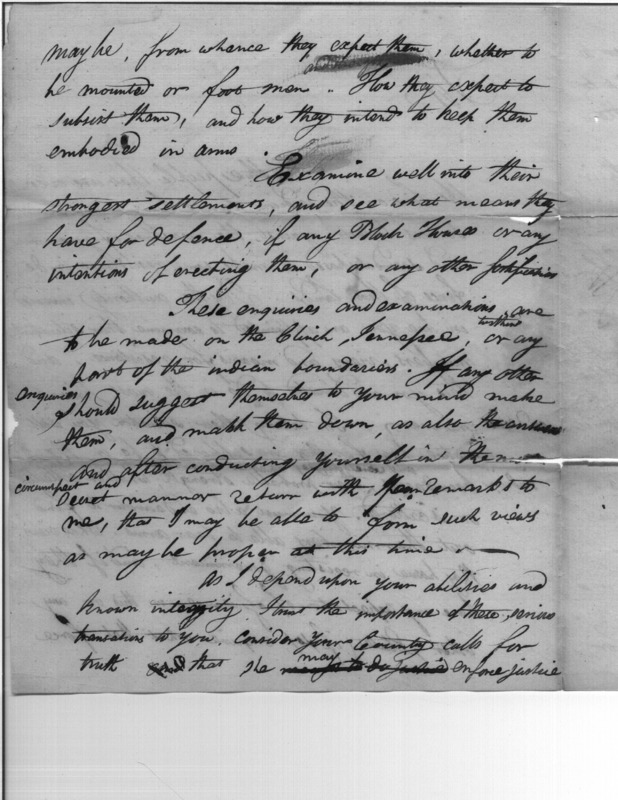 may be, from whence they expect them, whether to
be mounted or foot men. How they expect to
subsist them, and how they intend to keep them
embodied in arms
Examine well into their
strongest settlements, and see what means they
have for defence, if any Block Houses or any
intentions of erecting them, or any other fortifications
These enquiries and examinations, are
to be made on the Clinch, Tennessee, or any
part of the indian boundaries. If any other
enquiries should suggest themselves to your mind make
them, and mark them down, as also the answers
and after conducting yourself in the
circumspect and Secret mannor return with your remarks to
me, that I may be able to form such views
as may be proper at this time
As I depend upon your abilities and
known integrity I trust the importance of these serious
transations to you. Consider your Country calls for
truth and that she may enforce justice